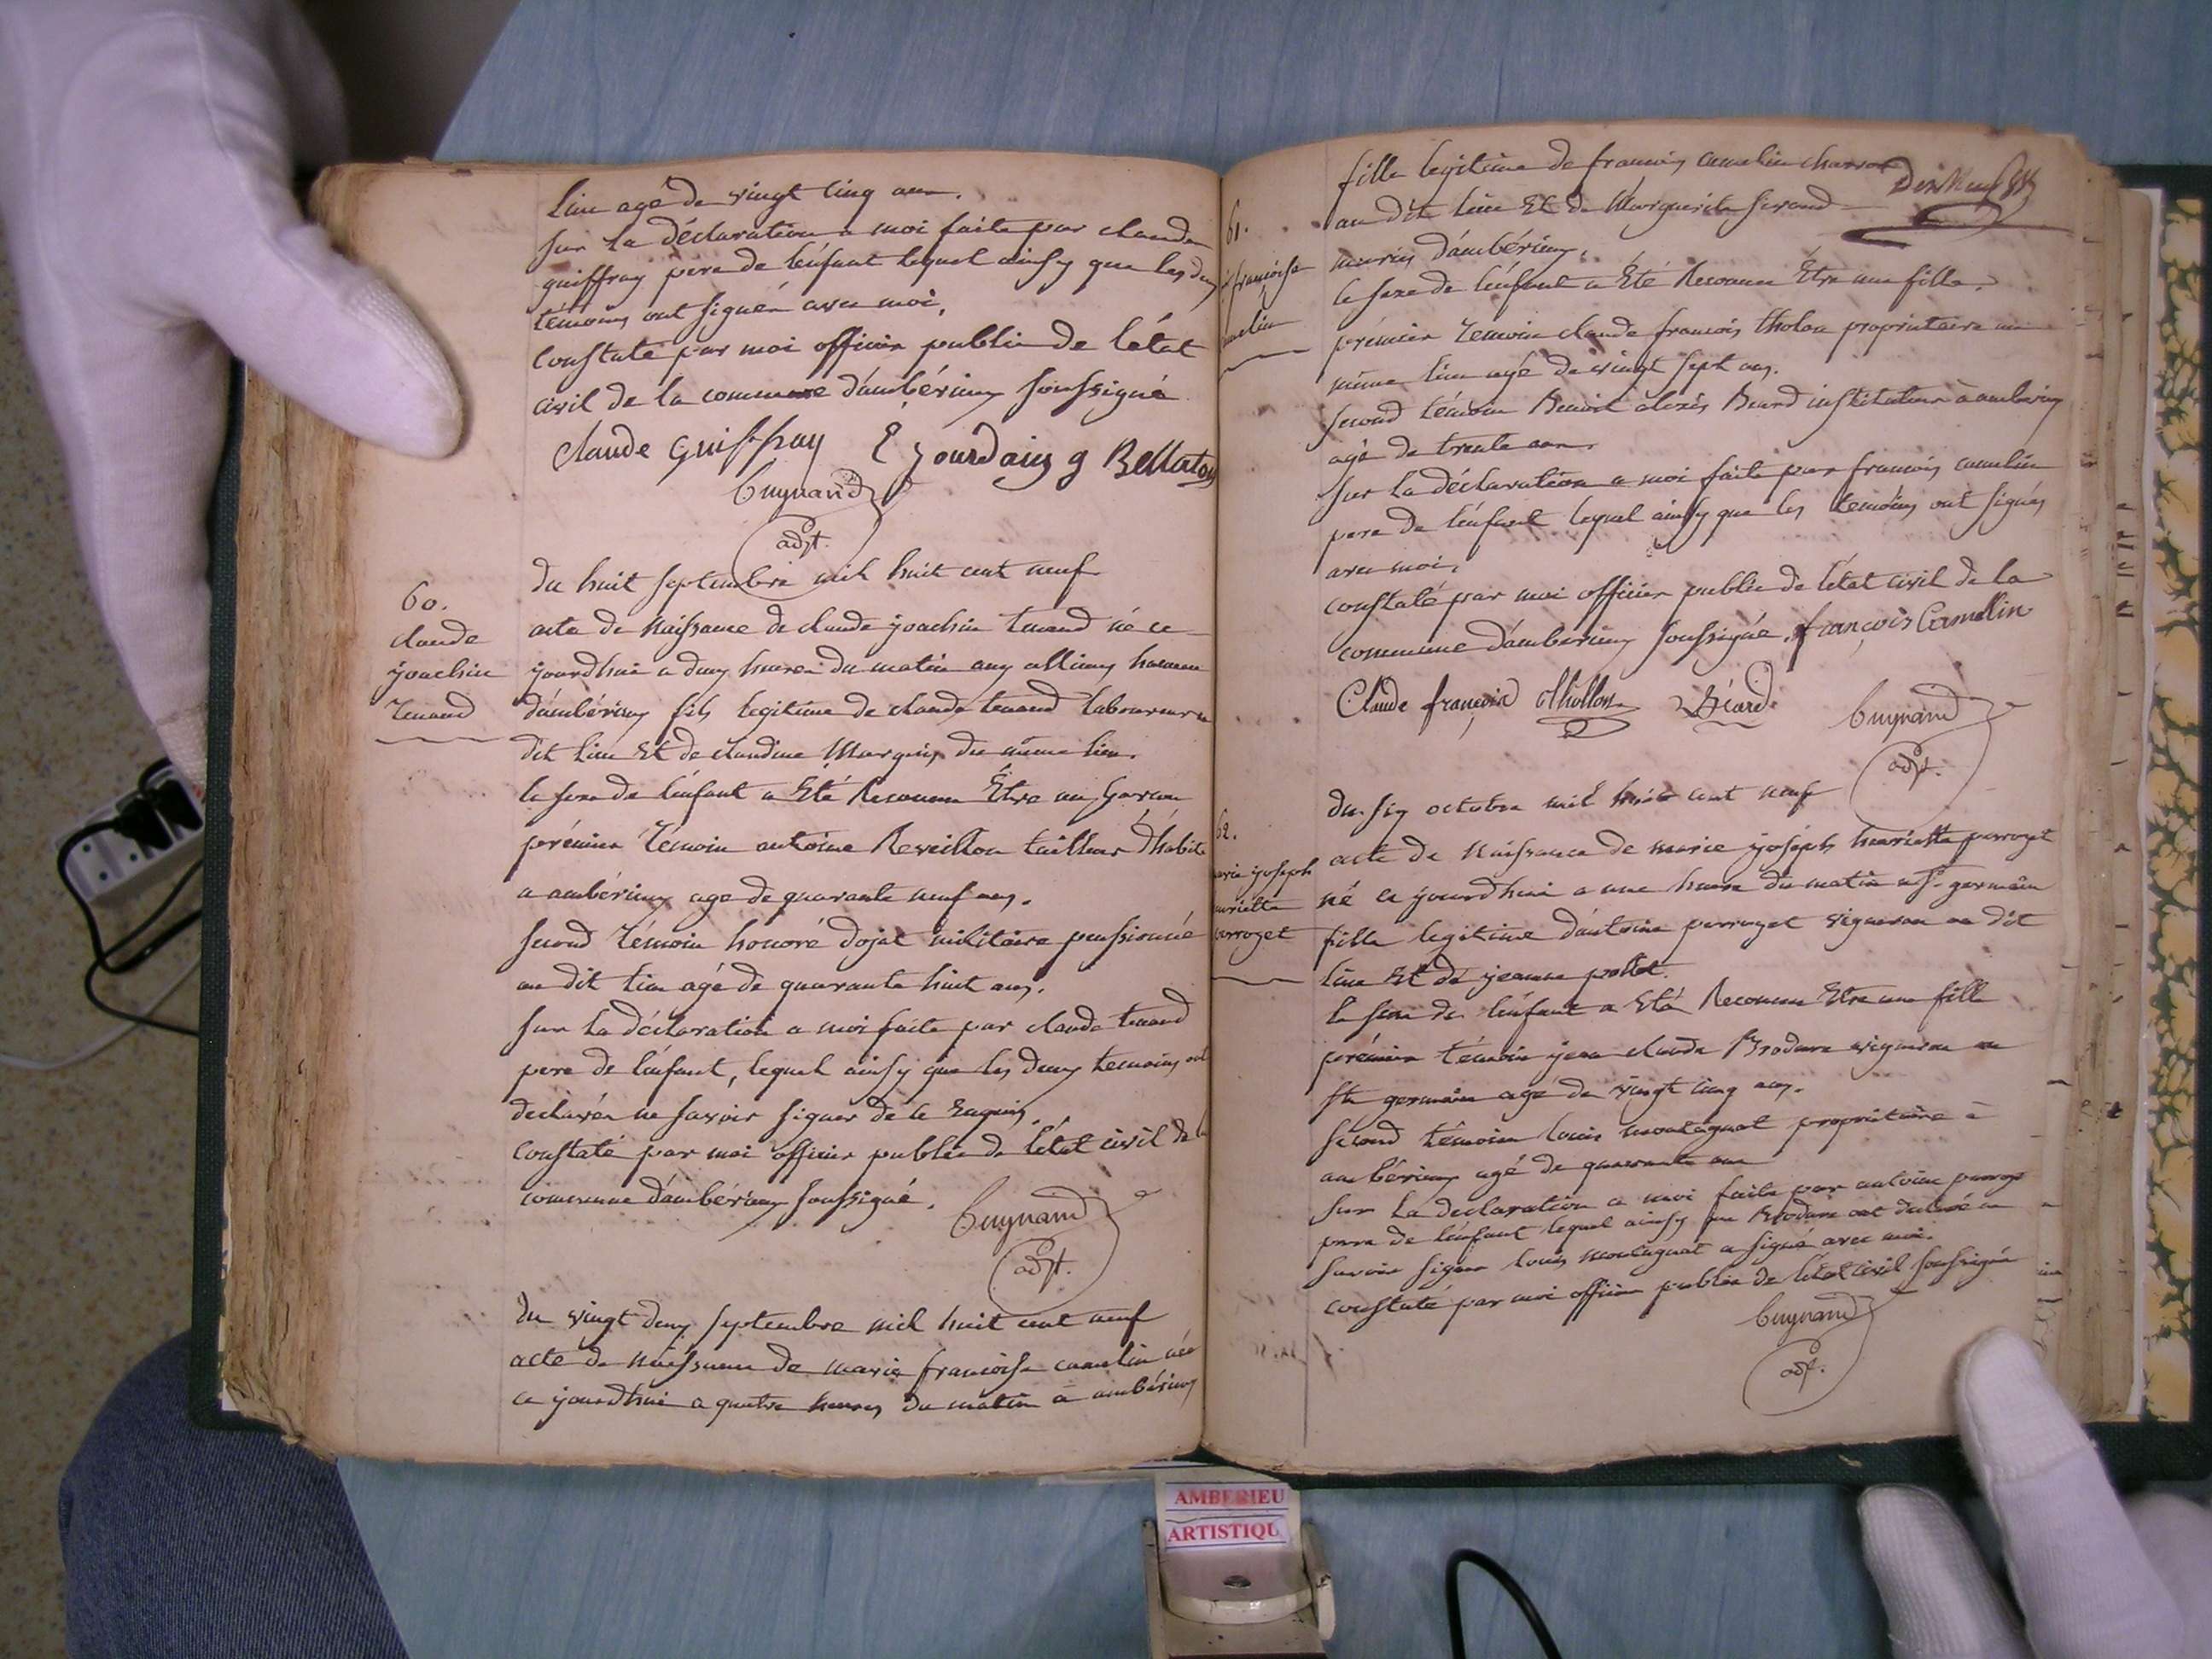 lieu agé de vingt cinq ans.
sur la déclaration a moi faite par claude
guiffray pere de lénfant lequel ainsy que les deux
témoins ont signér avec moi,
constaté par moi officier public de létat
civil de la commune dámbérieux soussigné
Claude Guiffray E Jourdain g Bellaton
Cuynand
adjt.
60.
claude
joachin
Tenand
du huit septembre mil huit cent neuf
acte de Naissance de claude joachin tenand né ce
jourdhui a deux heures du matin aux allimes hameau
dámbérieux fils legitime de claude tenand laboureur au
dit lieu Et de claudine Marquis du même lieu.
le sexe de lénfant a Eté Reconnu Être un garcon
prémier Témoin antoine Reveillon tailleur d'habits
a ambérieux age de quarante neuf ans.
second Témoin honoré dojat militaire pensionné
au dit lieu agé de quarante huit ans.
sur la déclaration a moi faite par claude tenand
pere de lénfant, lequel ainsy que les deux temoins ont
declarér ne savoir signer de ce Enquis,
constaté par moi officier public de létat civil de la
commune dámbérieux soussigné.
Cuynand
adjt.
du vingt deux septembre mil huit cent neuf
acte de Naissance de marie francoise camelin née
ce jourdhui a quatre heures du matin à ambérieux
fille legitime de francois camelin charron
au dit lieu Et de Marguerite
Dix Neuf
61.
francoise
melin
mariés dámbérieux.
le sexe de lénfant a Eté Reconnu Être une fille.
prémier Temoin claude francois tholon propriétaire au
même lieu agé de vingt sept ans.
second témoin Benoit alexis Beard instituteur à ambérieux
agé de trente ans.
sur la déclaration a moi faite par francois camelin
pere de lénfant lequel ainsy que les temoins ont signés
avec moi,
constaté par moi officier public de létat civil de la
commune dámberieux soussigné. françois Camelin
Claude françois Thollon Béard
Cuynand
adjt.
62.
marie joseph
henriette
perroget
du six octobre mil huit cent neuf
acte de Naissance de marie joseph henriette perroget
né ce jourdhui a une heure du matin a St germain
fille legitime dántoine perroget vigneron au dit
lieu Et de jeanne pollet.
le sexe de lénfant a Eté Reconnu Etre une fille
prémier témoin jean claude Brodure vigneron au
St germain agé de vingt cinq ans.
sécond témoin louis montagnat propriétaire à
ambérieux agé de quarante ans
sur la declaration a moi faite par antoine perroget
pere de lénfant lequel ainsy que Brodure ont declaré ne
savoir signer louis montagnat a signé avec moi.
constaté par moi officier public de létat civil soussigné
Cuynand
adjt.
AMBERIEU
ARTISTIQU